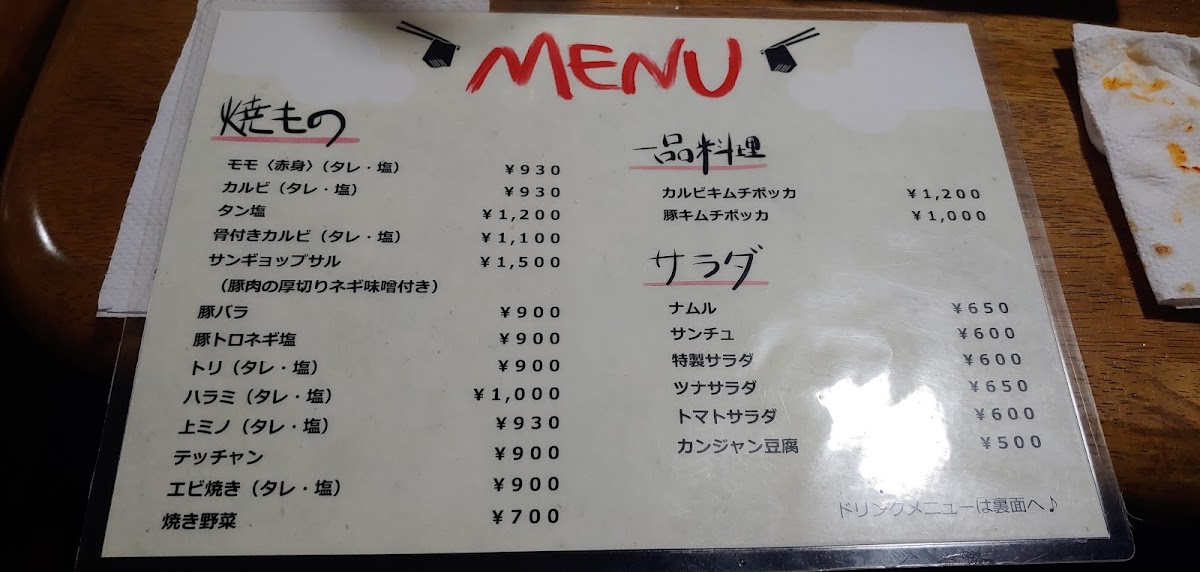 MENU
焼もの
モモ〈赤身〉（タレ・塩） ¥930
カルビ（タレ・塩） ¥930
タン塩 ¥1,200
骨付きカルビ（タレ・塩） ¥1,100
サンギョップサル ¥1,500
（豚肉の厚切りネギ味噌付き）
豚バラ ¥900
豚トロネギ塩 ¥900
トリ（タレ・塩） ¥900
ハラミ（タレ・塩） ¥1,000
上ミノ（タレ・塩） ¥930
テッチャン ¥900
エビ焼き（タレ・塩） ¥900
焼き野菜 ¥700
一品料理
カルビキムチポッカ ¥1,200
豚キムチポッカ ¥1,000
サラダ
ナムル ¥650
サンチュ ¥600
特製サラダ ¥600
ツナサラダ ¥650
トマトサラダ ¥600
カンジャン豆腐 ¥500
ドリンクメニューは裏面へ♪